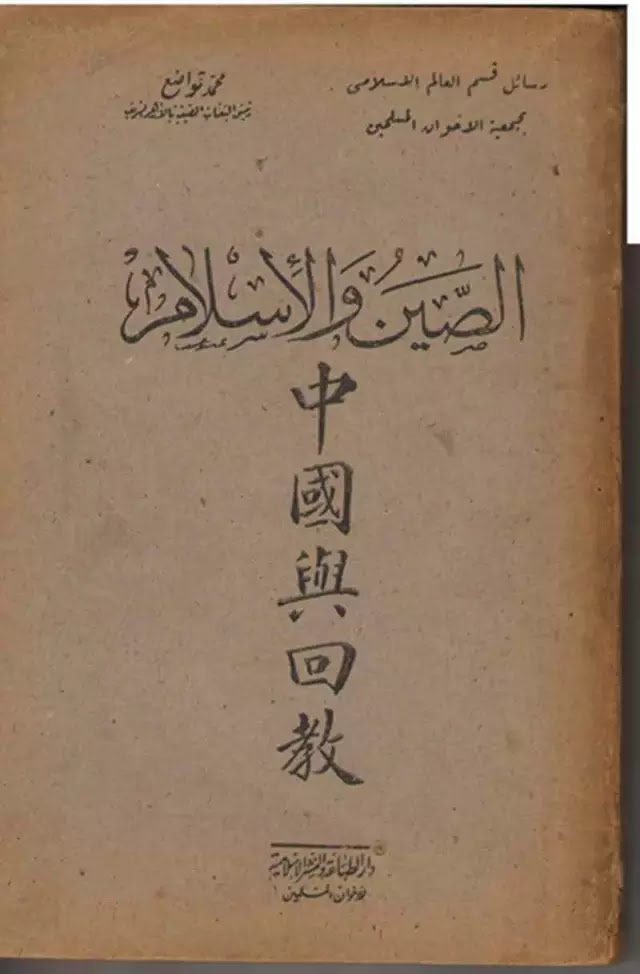 رسائل قسم العالم الاسلامى
بجمعية الاخوان المسلمين
محمد تواضع
رئيس البعثات الصينية بالأزهر الشريف
الصِّيَنُ وَالأِسْلَام
中
國
與
回
教
دار الطباعة والنشر الإسلامية
للاخوان المسلمين